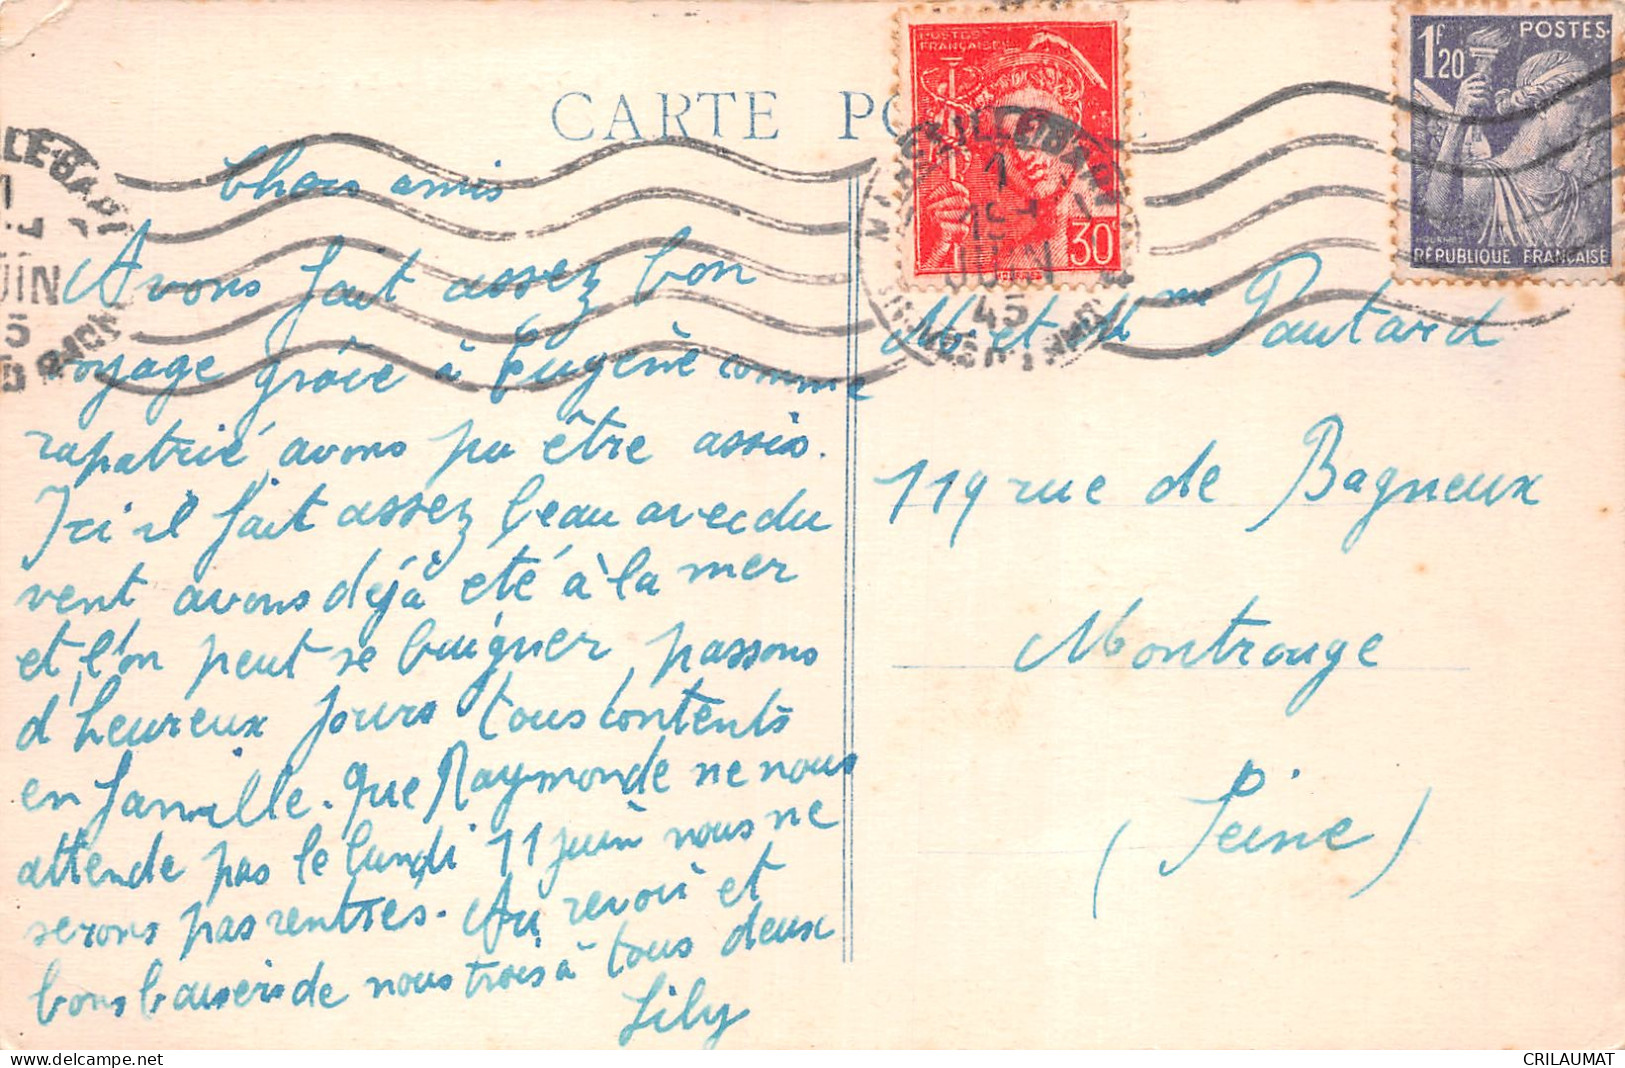 CARTE PO
POSTES
FRANÇAISES
30c
1F20
POSTES
RÉPUBLIQUE FRANÇAISE
JUIN
45
Chers amis
Avons fait assez bon
voyage grâce à Eugène comme
rapatrié, avons pu être assis.
Ici il fait assez beau avec du
vent avons déjà été à la mer
et l'on peut se baigner, passons
d'heureux jours tous contents
en famille. Que Raymonde ne nous
attende pas le lundi 11 juin nous ne
serons pas rentrés. Au revoir et
bons baisers de nous trois à tous deux
Lily
Mr et Mme Pautard
119 rue de Bagneux
Montrouge
(Seine)
CRILAUMAT